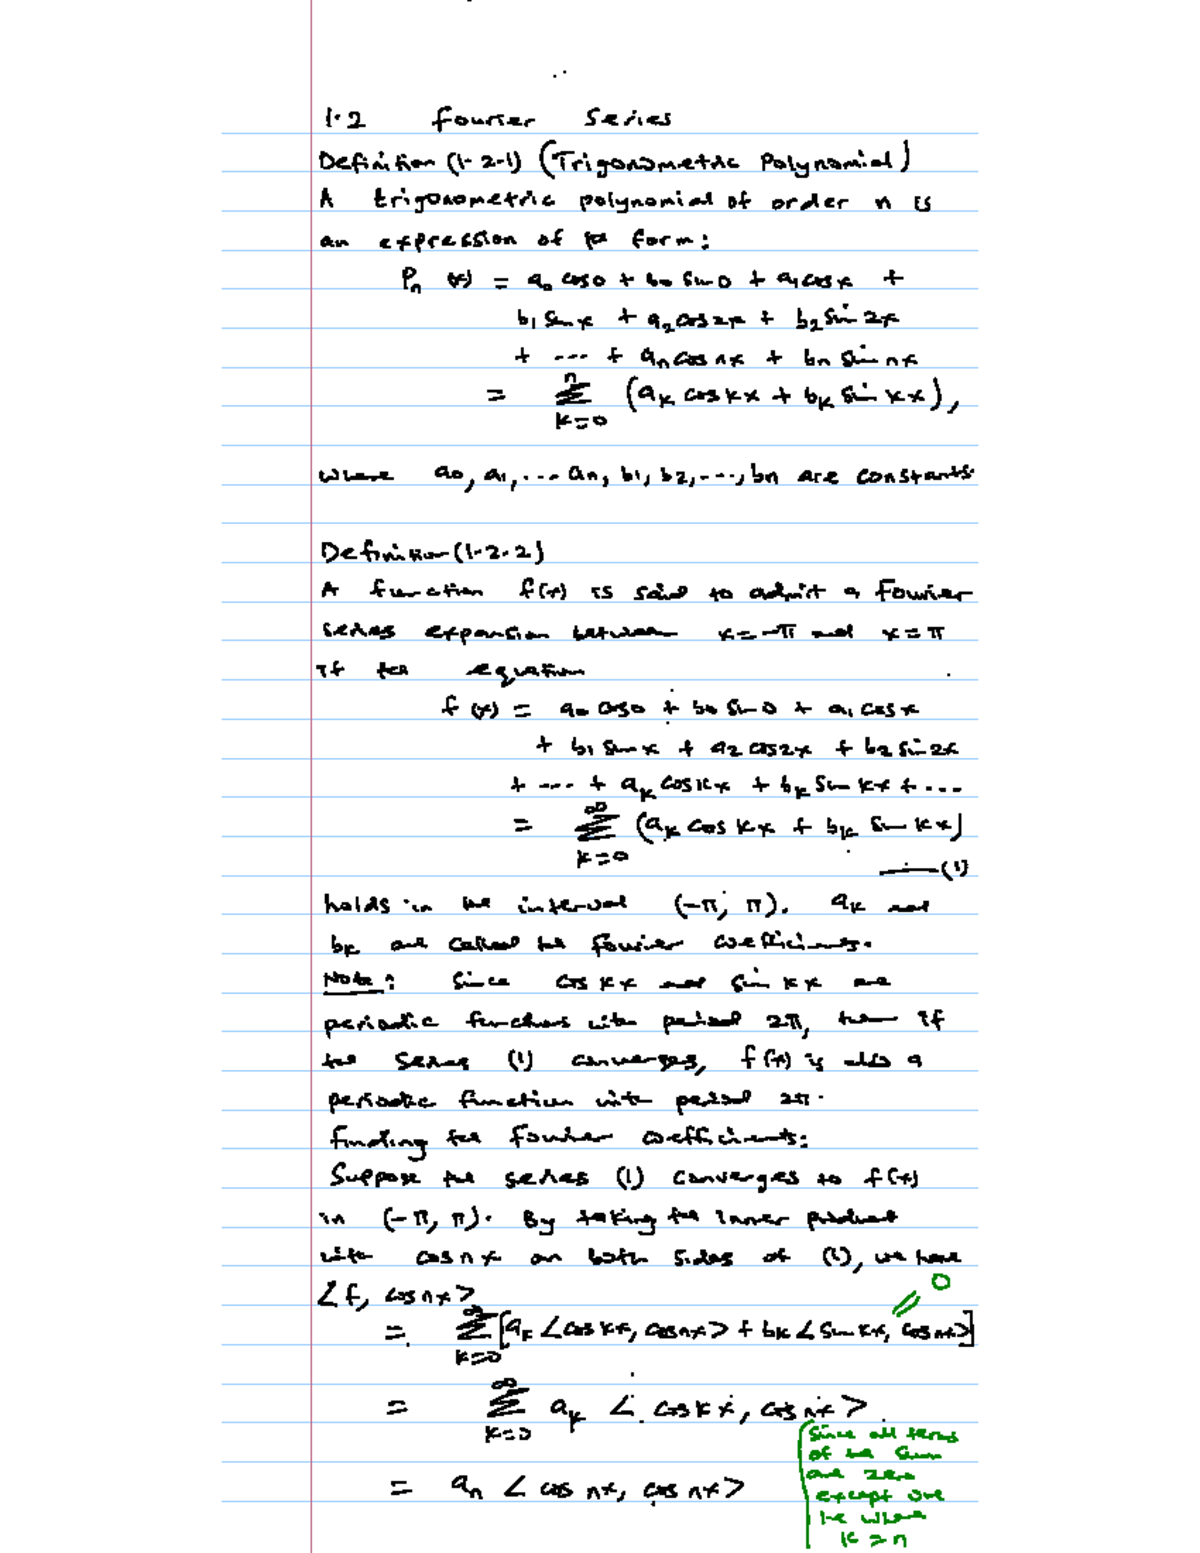 1.2 Fourier Series
Definition (1-2-1) (Trigonometric Polynomial)
A trigonometric polynomial of order n is
an expression of the form:
Pn (x) = a₀ cos0 + b₀ sin 0 + a₁cosx +
b₁ sinx + a₂cos2x + b₂ sin 2x
+ --- + an cos nx + bn sin nx
= n∑k=0 (ak cos kx + bk sin kx),
where a₀, a₁, ... an, b₁, b₂, ---, bn are constants.
Definition (1-2-2)
A function f(x) is said to admit a Fourier
series expansion between x=-π and x=π
if the equation
f(x) = a₀ cos0 + b₀ sin 0 + a₁ cosx
+ b₁ sinx + a₂ cos2x + b₂ sin 2x
+ --- + ak cos kx + bk sin kx + ...
= ∞∑k=0 (ak cos kx + bk sin kx)
—(1)
holds in the interval (-π, π). ak and
bk are called the fourier coefficients.
Note: Since cos kx and sin kx are
periodic functions with period 2π, then if
the series (1) converges, f(x) is also a
periodic function with period 2π.
Finding the fourier coefficients:
Suppose the series (1) converges to f(x)
in (-π, π). By taking the inner product
with cos nx on both sides of (1), we have
<f, cosnx>
= ∞∑k=0 [ak <cos kx, cosnx> + bk <sin kx, cosnx>] // 0
= ∞∑k=0 ak <cos kx, cos nx>
= an <cos nx, cos nx>
Since all terms
of the sum
are zero
except one
i.e where
k=n